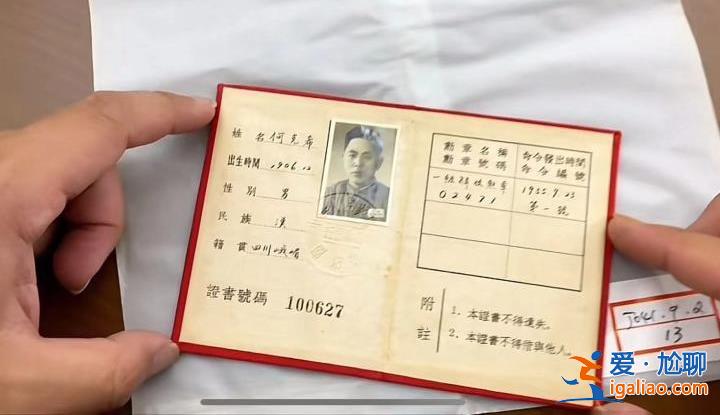 姓名 何克希
出生時間 1906.12
性别 男
民族 漢
籍貫 四川峨嵋
證書號碼 100627
勳章名稱 命令發出時間
勳章號碼 命令編號
一級解放勳章 1955.9.23
02471 第一號
附註
1. 本證書不得遺失。
2. 本證書不得借與他人。
J041.9.2
13
爱·尬聊
igaliao.com